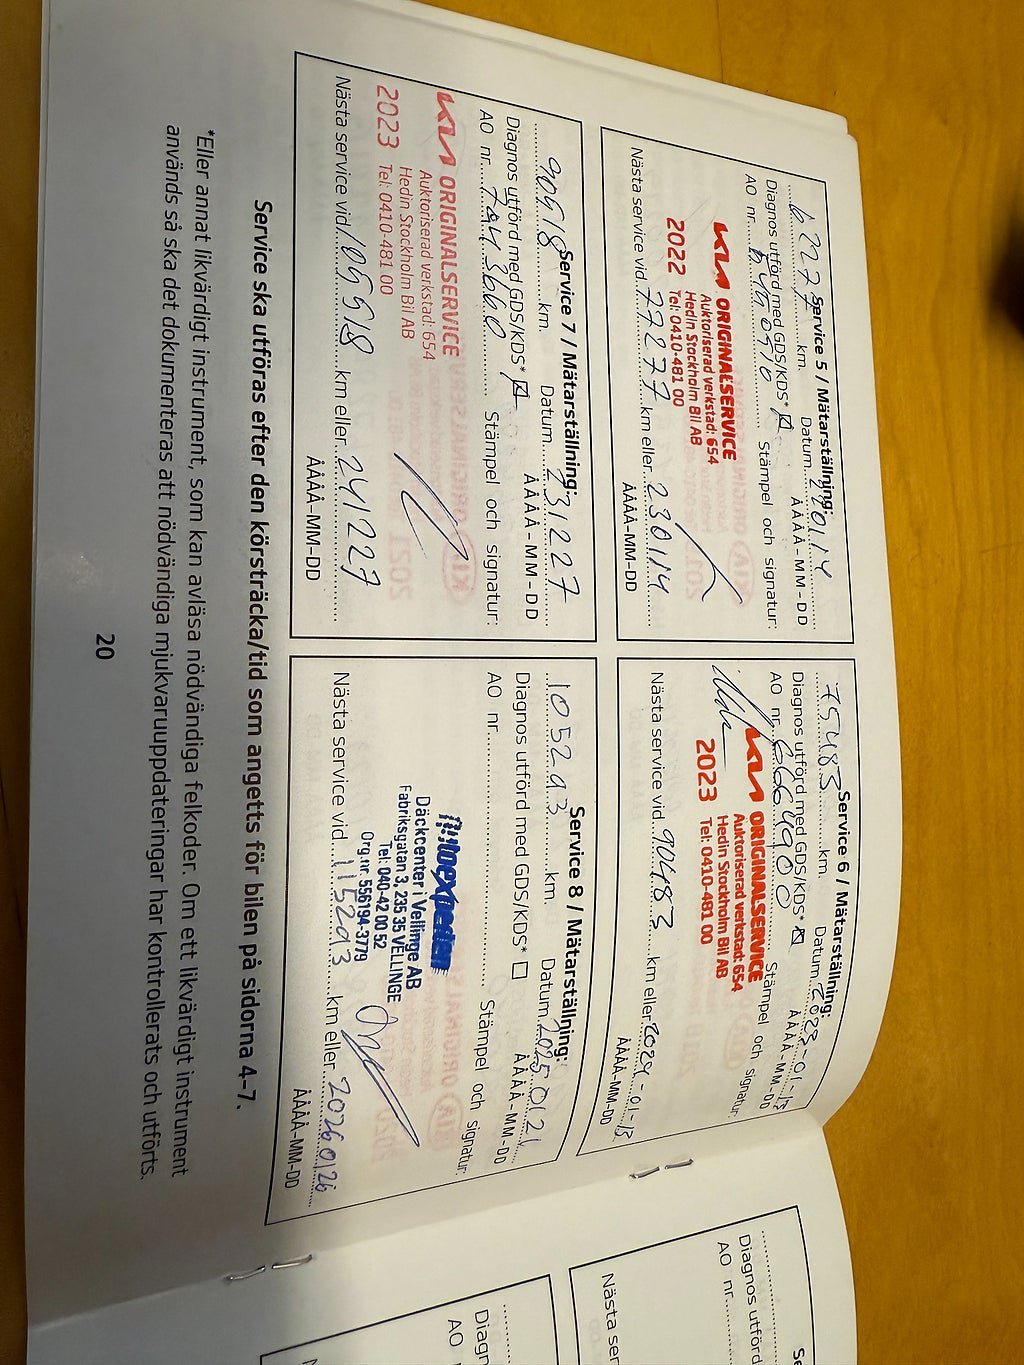 Service 5 / Mätarställning:
62277 km. Datum 220114
ÅÅÅÅ-MM-DD
Diagnos utförd med GDS/KDS*
AO nr. Stämpel och signatur:
KIA ORIGINALSERVICE
Auktoriserad verkstad: 654
Hedin Stockholm Bil AB
2022 Tel: 0410-481 00
Nästa service vid 77277 km eller 230114
ÅÅÅÅ-MM-DD
Service 6 / Mätarställning:
75483 km. Datum
ÅÅÅÅ-MM-DD
Diagnos utförd med GDS/KDS*
AO nr. 666490 Stämpel och signatur:
KIA ORIGINALSERVICE
Auktoriserad verkstad: 654
Hedin Stockholm Bil AB
2023 Tel: 0410-481 00
Nästa service vid 90483 km eller 2024-01-13
ÅÅÅÅ-MM-DD
Service 7 / Mätarställning:
90518 km. Datum 231227
ÅÅÅÅ-MM-DD
Diagnos utförd med GDS/KDS*
AO nr. Stämpel och signatur:
KIA ORIGINALSERVICE
Auktoriserad verkstad: 654
Hedin Stockholm Bil AB
2023 Tel: 0410-481 00
Nästa service vid 105518 km eller 241227
ÅÅÅÅ-MM-DD
Service 8 / Mätarställning:
105293 km. Datum 20250121
ÅÅÅÅ-MM-DD
Diagnos utförd med GDS/KDS*
AO nr. Stämpel och signatur:
Autoexperten
Däckcenter i Vellinge AB
Fabriksgatan 3, 235 35 VELLINGE
Tel: 040-42 00 52
Org.nr. 556194-3779
Nästa service vid 115293 km eller 20260126
ÅÅÅÅ-MM-DD
Service ska utföras efter den körsträcka/tid som angetts för bilen på sidorna 4-7.
*Eller annat likvärdigt instrument, som kan avläsa nödvändiga felkoder. Om ett likvärdigt instrument
används så ska det dokumenteras att nödvändiga mjukvaruuppdateringar har kontrollerats och utförts.
20
Diagnos utförd
AO nr.
Nästa ser
Diagn
AO